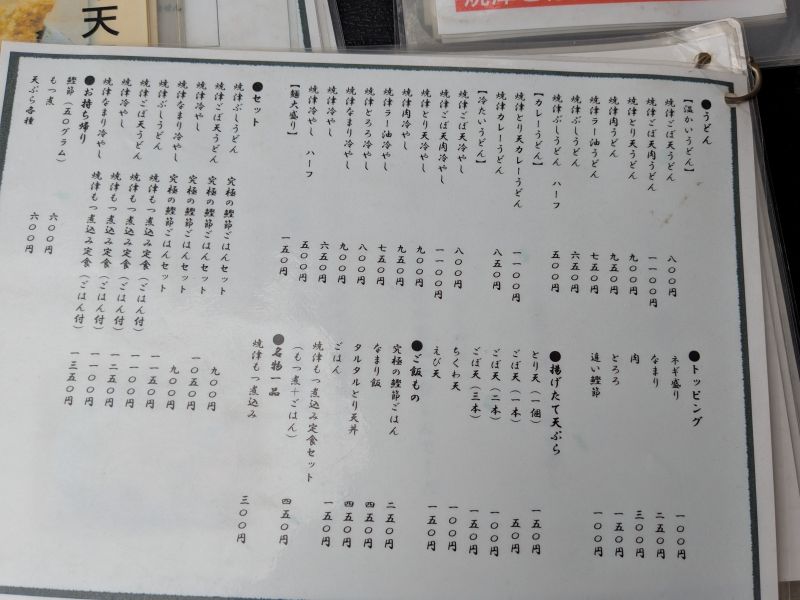 ●うどん
【温かいうどん】
焼津ごぼ天うどん 八〇〇円
焼津ごぼ天肉うどん 一一〇〇円
焼津とり天うどん 九〇〇円
焼津肉うどん 九五〇円
焼津ラー油うどん 七五〇円
焼津ぶしうどん 六五〇円
焼津ぶしうどん ハーフ 五〇〇円
【カレーうどん】
焼津とり天カレーうどん 一一〇〇円
焼津カレーうどん 八五〇円
【冷たいうどん】
焼津ごぼ天冷やし 八〇〇円
焼津ごぼ天肉冷やし 一一〇〇円
焼津とり天冷やし 九〇〇円
焼津肉冷やし 九五〇円
焼津ラー油冷やし 七五〇円
焼津とろろ冷やし 八〇〇円
焼津なまり冷やし 九〇〇円
焼津冷やし 六五〇円
焼津冷やし ハーフ 五〇〇円
【麺大盛り】 一五〇円
●セット
焼津ぶしうどん 究極の鰹節ごはんセット 九〇〇円
焼津ごぼ天うどん 究極の鰹節ごはんセット 一〇五〇円
焼津冷やし 究極の鰹節ごはんセット 九〇〇円
焼津なまり冷やし 究極の鰹節ごはんセット 一一五〇円
焼津ぶしうどん 焼津もつ煮込み定食（ごはん付） 一一〇〇円
焼津ごぼ天うどん 焼津もつ煮込み定食（ごはん付） 一二五〇円
焼津冷やし 焼津もつ煮込み定食（ごはん付） 一一〇〇円
焼津なまり冷やし 焼津もつ煮込み定食（ごはん付） 一三五〇円
●お持ち帰り
鰹節（五〇グラム） 六〇〇円
もつ煮 六〇〇円
天ぷら各種
●トッピング
ネギ盛り 一〇〇円
なまり 二五〇円
肉 三〇〇円
とろろ 一五〇円
追い鰹節 一〇〇円
●揚げたて天ぷら
とり天（一個） 一五〇円
ごぼ天（一本） 五〇円
ごぼ天（二本） 一〇〇円
ごぼ天（三本） 一五〇円
ちくわ天 一〇〇円
えび天 一五〇円
●ご飯もの
究極の鰹節ごはん 二五〇円
なまり飯 四五〇円
タルタルとり天丼 四五〇円
ごはん 一五〇円
焼津もつ煮込み定食セット
（もつ煮＋ごはん） 四五〇円
●名物一品
焼津もつ煮込み 三〇〇円
天